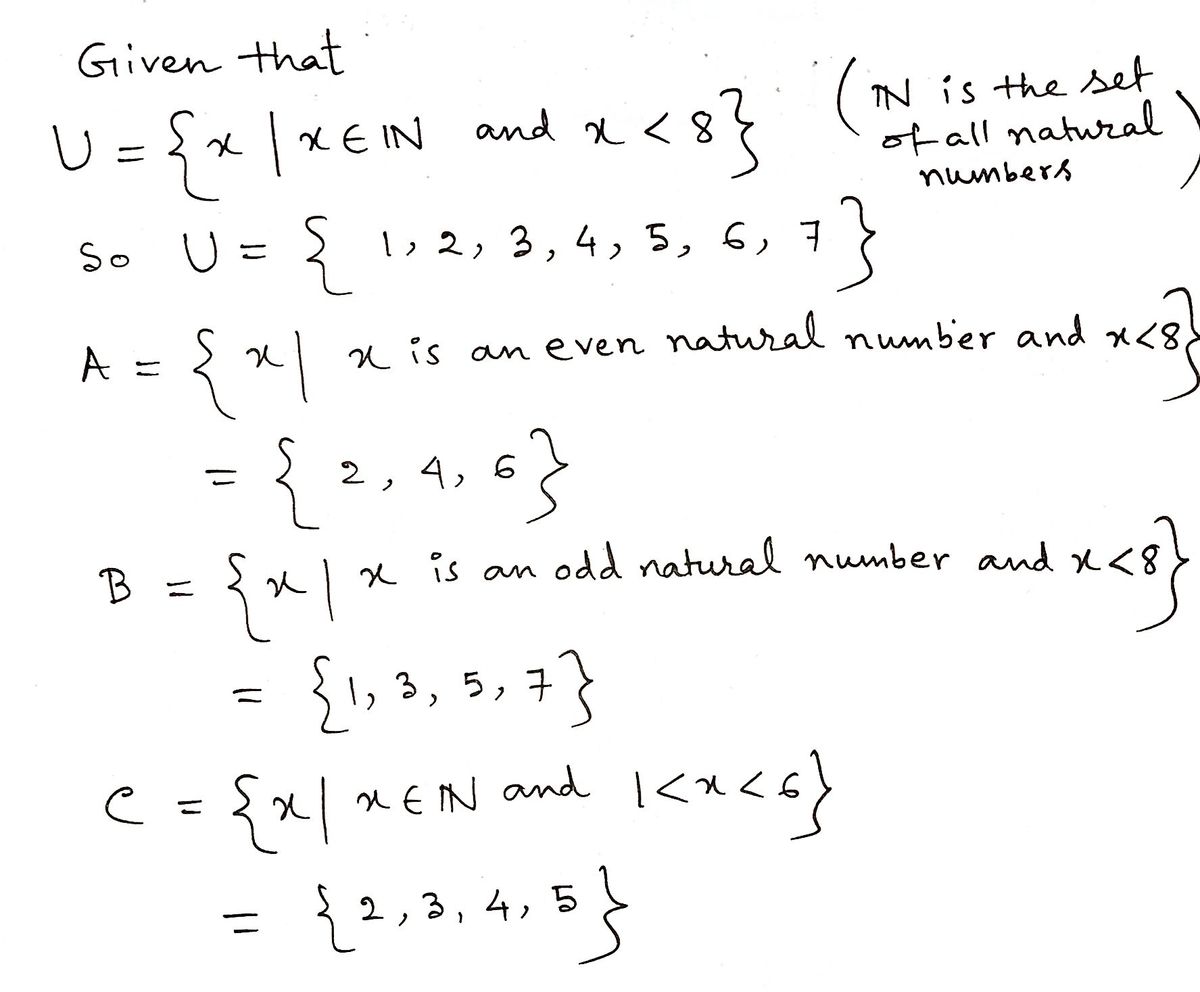 Given that
U = {x | x ∈ ℕ and x < 8} (ℕ is the set
of all natural
numbers)
So U = { 1, 2, 3, 4, 5, 6, 7 }
A = { x | x is an even natural number and x<8}
= { 2, 4, 6 }
B = {x | x is an odd natural number and x<8}
= {1, 3, 5, 7}
C = {x | x ∈ ℕ and 1<x<6}
= { 2, 3, 4, 5 }